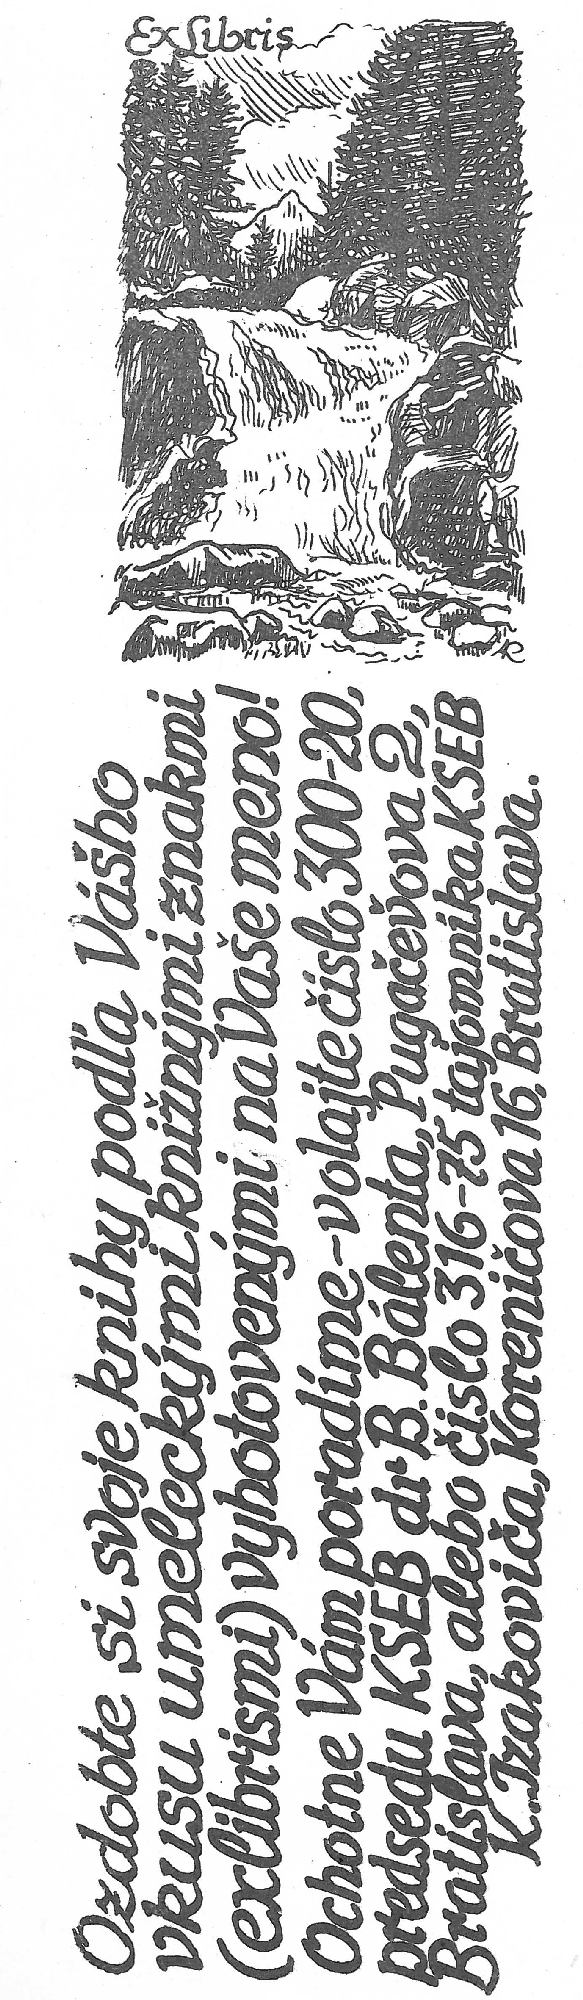 Ex Libris
AR
Ozdobte si svoje knihy podľa Vášho
vkusu umeleckými knižnými znakmi
(exlibrismi) vyhotovenými na Vaše meno!
Ochotne Vám poradíme - volajte číslo 300-20,
predsedu KSEB dr B. Bálenta, Pugačevova 2,
Bratislava, alebo číslo 316-75 tajomníka KSEB
K. Izakoviča, Koreničova 16, Bratislava.